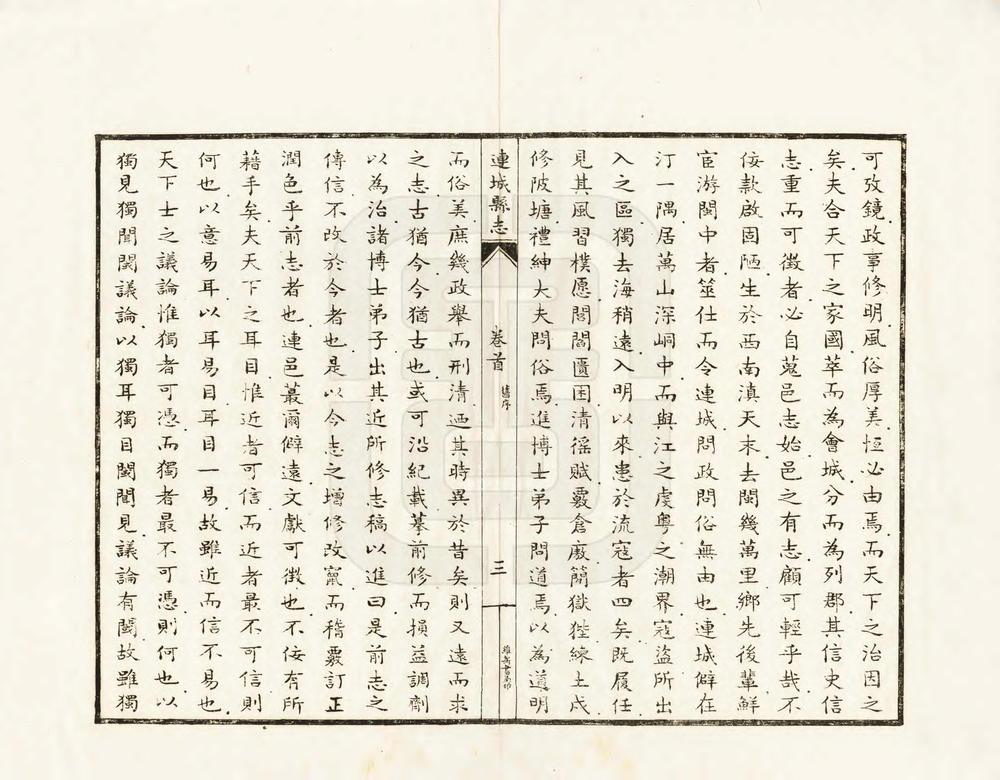 可攷鏡政事修明風俗厚美恆必由焉而天下之治因之
矣夫合天下之家國萃而為會城分而為列郡其信史信
志重而可徵者必自蒐邑志始邑之有志顧可輕乎哉不
佞款啟固陋生於西南滇天末去閩幾萬里鄉先後輩鮮
宦游閩中者筮仕而令連城問政問俗無由也連城僻在
汀一隅居萬山深峒中而與江之虔粵之潮界寇盜所出
入之區獨去海稍遠入明以來患於流寇者四矣既履任
見其風習樸愿閭閻匱困清徭賦覈倉廒簡獄狴練土戍
修陂塘禮紳大夫問俗焉進博士弟子問道焉以為道明
連城縣志
卷首
舊序
三
維新書局印
而俗美庶幾政舉而刑清迺其時異於昔矣則又遠而求
之志古猶今今猶古也或可沿紀載摹前修而損益調劑
以為治諸博士弟子出其近所修志稿以進曰是前志之
傳信不改於今者也是以今志之增修改竄而稽覈訂正
潤色乎前志者也連邑蕞爾僻遠文獻可徵也不佞有所
藉手矣夫天下之耳目惟近者可信而近者最不可信則
何也以意易耳以耳易目耳目一易故雖近而信不易也
天下士之議論惟獨者可憑而獨者最不可憑則何也以
獨見獨聞閡議論以獨耳獨目閡聞見議論有閡故雖獨